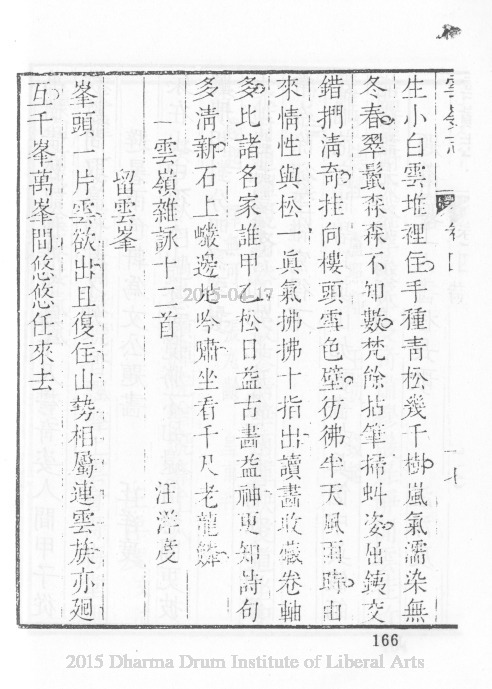 雲嶺志 卷四 十七
生小白雲堆裡住手種青松幾千樹嵐氣濡染無
冬春翠鬛森森不知數梵餘拈筆掃虯姿屈鐵交
錯捫清奇挂向樓頭雪色壁彷彿半天風雨時由
來情性與松一眞氣拂拂十指出讀畫收藏卷軸
多比諸名家誰甲乙松日益古畵益神更知詩句
多清新石上巖邊足吟嘯坐看千尺老龍鱗
雲嶺雜詠十二首 汪洋度
留雲峯
峯頭一片雲欲出且復住山勢相屬連雲族亦廻
互千峯萬峯間悠悠任來去
166
2015-04-17
2015 Dharma Drum Institute of Liberal Arts